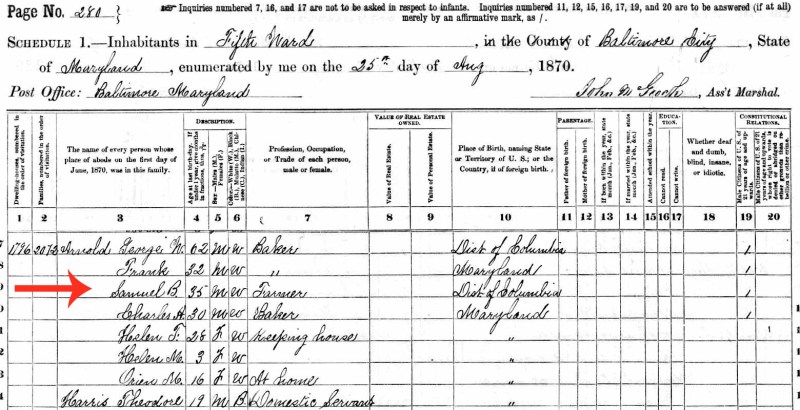 Page No. 280 } Inquiries numbered 7, 16, and 17 are not to be asked in respect to infants. Inquiries numbered 11, 12, 15, 16, 17, 19, and 20 are to be answered (if at all)
merely by an affirmative mark, as /.
SCHEDULE 1.—Inhabitants in Fifth Ward, in the County of Baltimore City, State
of Maryland, enumerated by me on the 25th day of Aug, 1870.
Post Office: Baltimore Maryland John M Ass't Marshal.
DESCRIPTION. VALUE OF REAL ESTATE OWNED. PARENTAGE. EDUCATION. CONSTITUTIONAL RELATIONS.
Dwelling-houses, numbered in the order of visitation. Families, numbered in the order of visitation. The name of every person whose place of abode on the first day of June, 1870, was in this family. Age at last birth-day. If under 1 year, give months in fractions, thus, Sex.—Males (M.), Females (F.) Color.—White (W.), Black (B.), Mulatto (M.), Chinese (C.), Indian (I.) Profession, Occupation, or Trade of each person, male or female. Value of Real Estate. Value of Personal Estate. Place of Birth, naming State or Territory of U. S.; or the Country, if of foreign birth. Father of foreign birth. Mother of foreign birth. If born within the year, state month (Jan., Feb., &c.) If married within the year, state month (Jan., Feb., &c.) Attended school within the year. Cannot read. Cannot write. Whether deaf and dumb, blind, insane, or idiotic. Male Citizens of U. S. of 21 years of age and upwards.
1 2 3 4 5 6 7 8 9 10 11 12 13 14 15 16 17 18 19 20
7 1796 2072 Arnold George W. 62 M W Baker Dist of Columbia 1
8 Frank 32 M W " Maryland 1
Samuel B. 35 M W Farmer Dist of Columbia 1
Charles A. 30 M W Baker Maryland 1
1 Helen F. 28 F W Keeping house "
2 Helen M. 3 F W "
3 Orien M. 16 F W At home "
4 Harris Theodore 19 M B Domestic Servant "